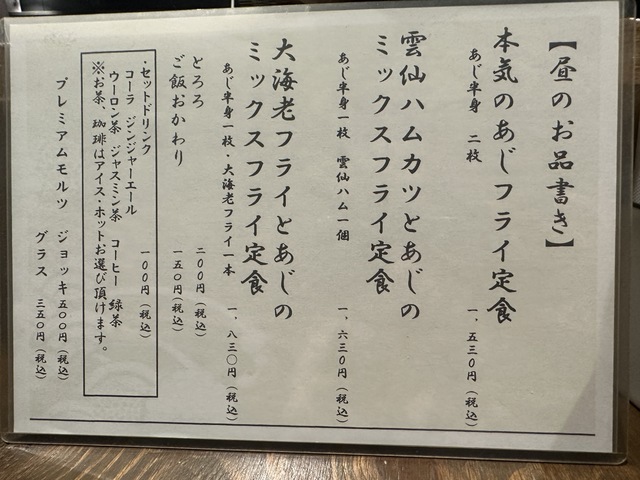 【昼のお品書き】
本気のあじフライ定食
あじ半身 二枚
一、五三〇円(税込)
雲仙ハムカツとあじの
ミックスフライ定食
あじ半身一枚 雲仙ハム一個
一、六三〇円(税込)
大海老フライとあじの
ミックスフライ定食
あじ半身一枚・大海老フライ一本
一、八三〇円(税込)
とろろ 二〇〇円(税込)
ご飯おかわり 一五〇円(税込)
・セットドリンク 一〇〇円(税込)
コーラ ジンジャーエール
ウーロン茶 ジャスミン茶 コーヒー 緑茶
※お茶、珈琲はアイス・ホットお選び頂けます。
プレミアムモルツ ジョッキ五〇〇円(税込)
グラス 三五〇円(税込)